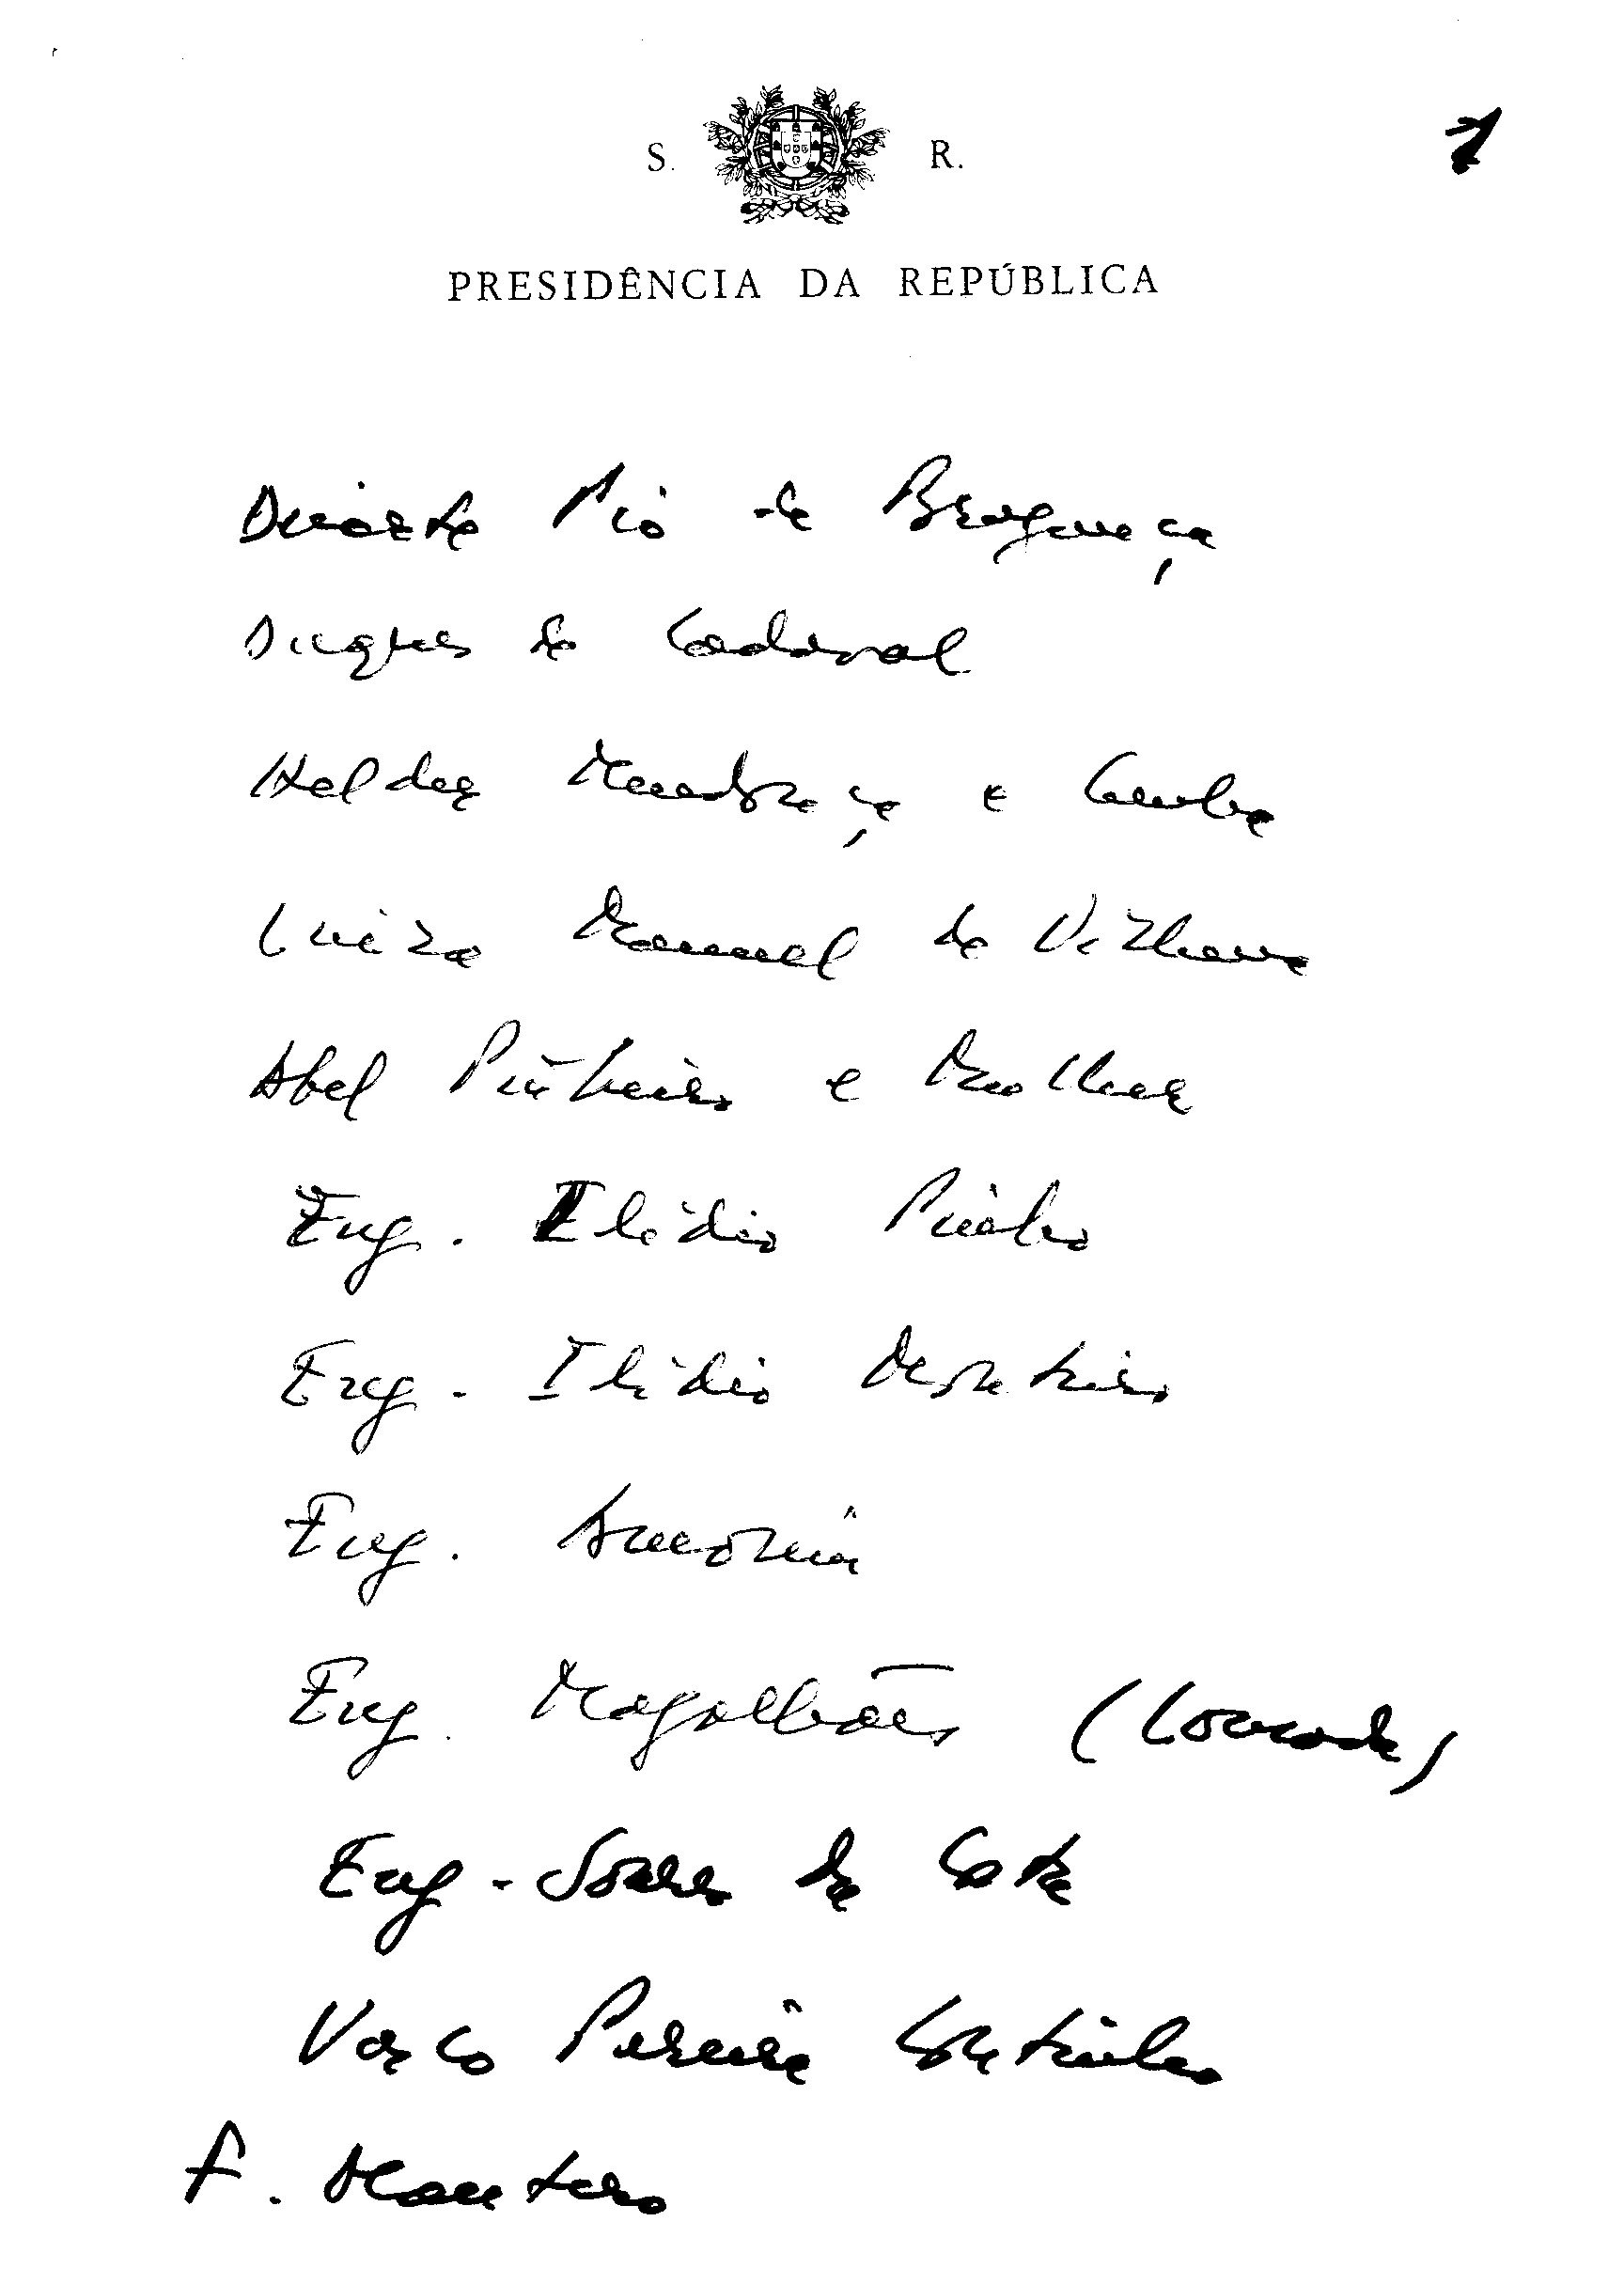 1
S. R.
PRESIDÊNCIA DA REPÚBLICA
Duarte Pio de Bragança
Duques de Cadaval
Helder Mendonça e Cunha
Luiza Manuel de Vilhena
Abel Pinheiro e Mulher
Eng. Ilídio Pinho
Eng. Ilídio Monteiro
Eng. Amorim
Eng. Magalhães (Lousada)
Eng. Soares da Costa
Vasco Pereira Coutinho
F. Monteiro